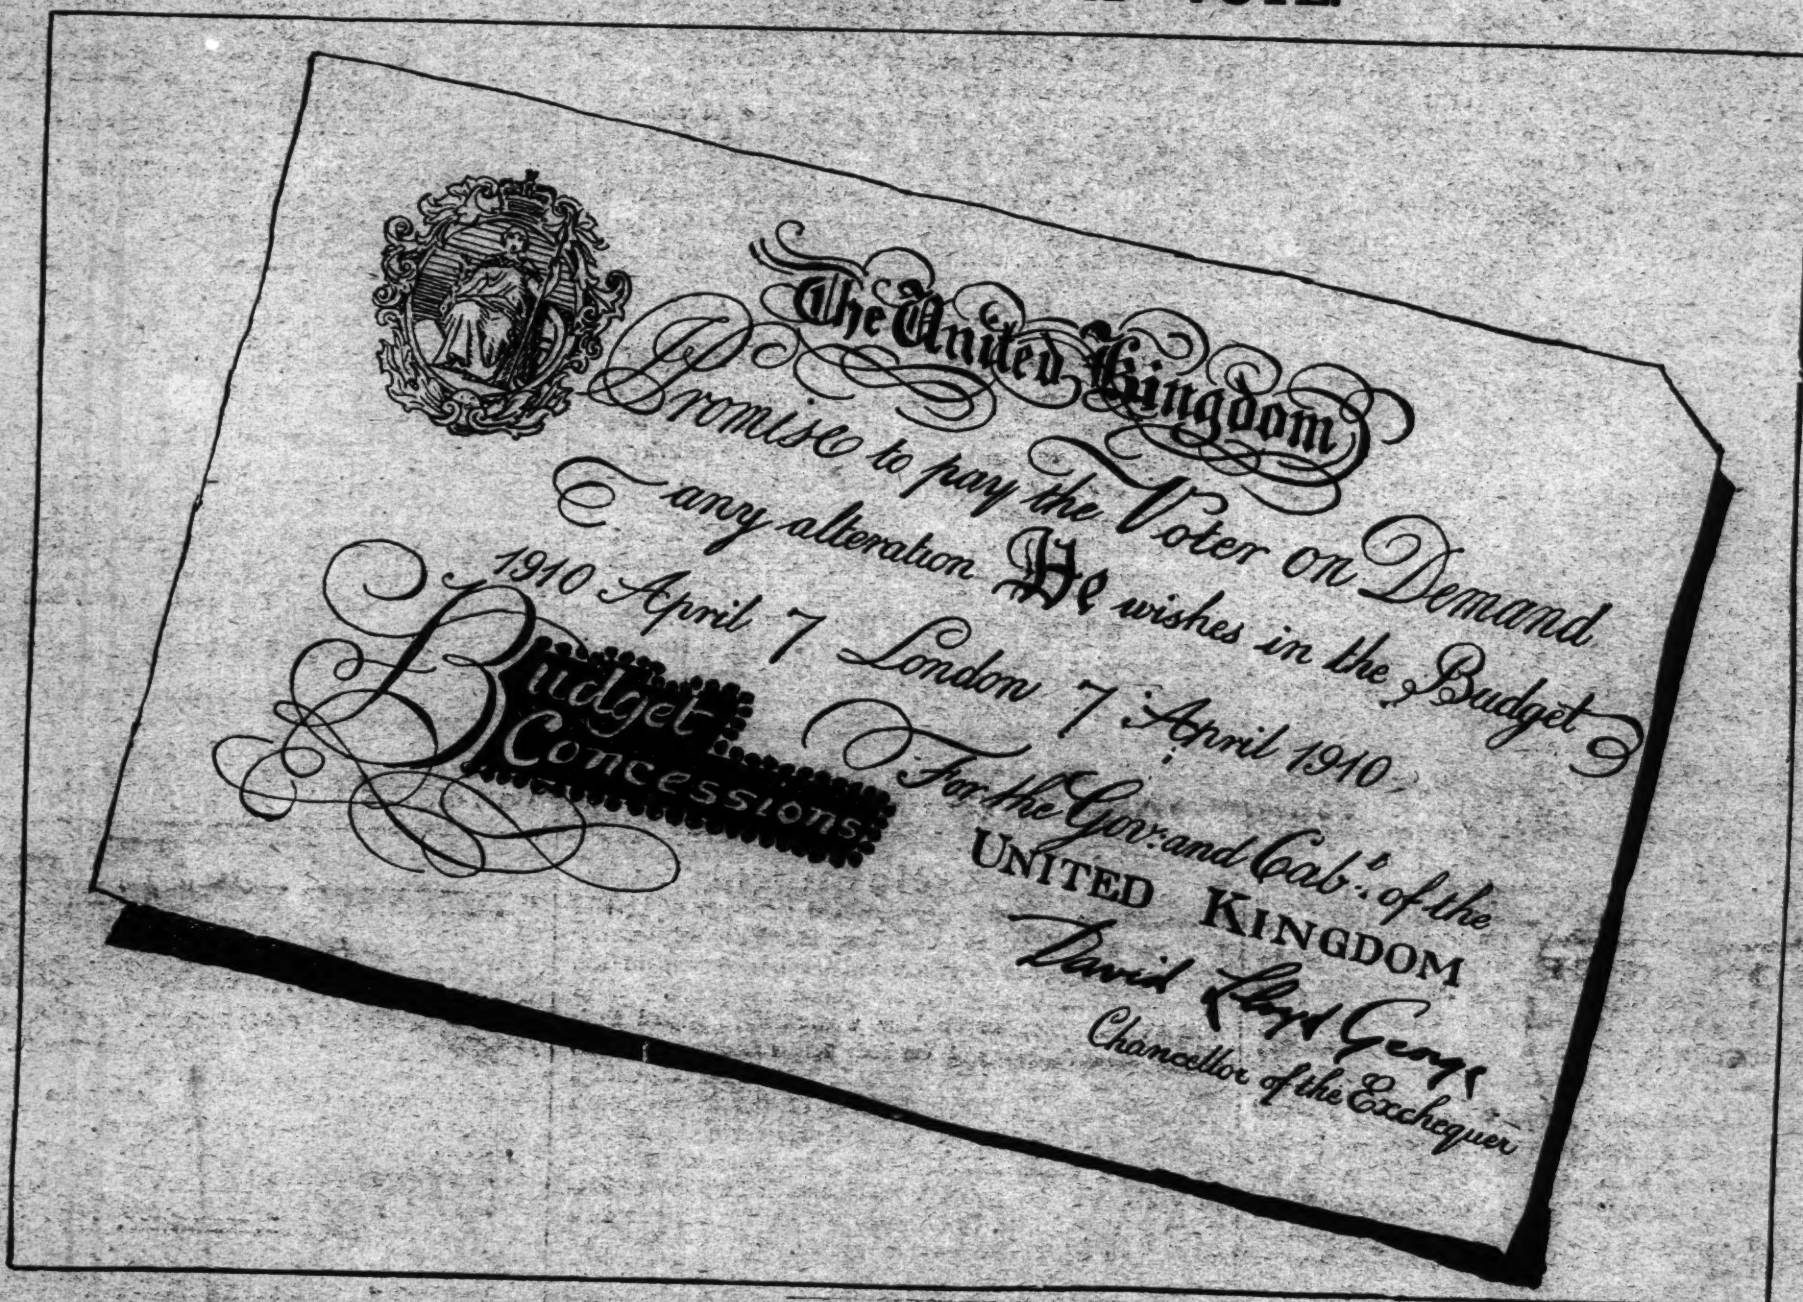 The United Kingdom
Promise to pay the Voter on Demand
any alteration He wishes in the Budget
1910 April 7 London 7 April 1910
Budget
Concessions
For the Gov:r and Cab:t of the
UNITED KINGDOM
David Lloyd George
Chancellor of the Exchequer